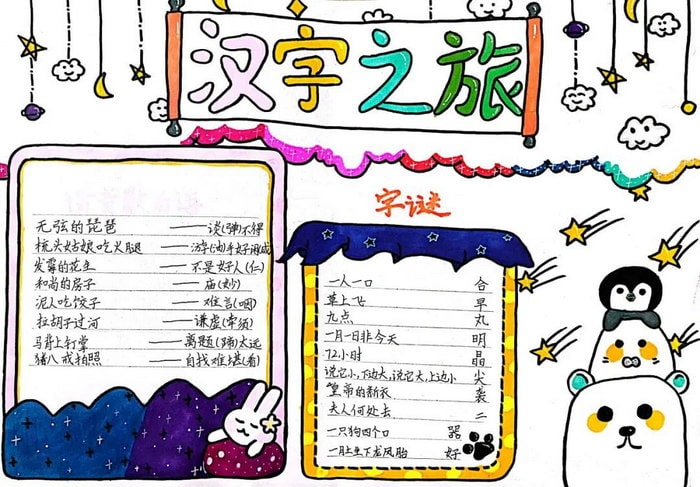 汉字之旅
无弦的琵琶——谈(弹)不得
梳头姑娘吃火腿——游(油)手好闲(咸)
发霉的花生——不是好人(仁)
和尚的房子——庙(妙)
泥人吃饺子——难言(咽)
拉胡子过河——谦虚(牵须)
马背上打掌——离题(蹄)太远
猪八戒拍照——自找难堪(看)
字谜
一人一口 合
草上飞 早
九点 丸
一月一日非今天 明
72小时 晶
说它小,下边大,说它大,上边小 尖
皇帝的新衣 袭
夫人何处去 二
一只狗四个口 器
生下龙凤胎 好